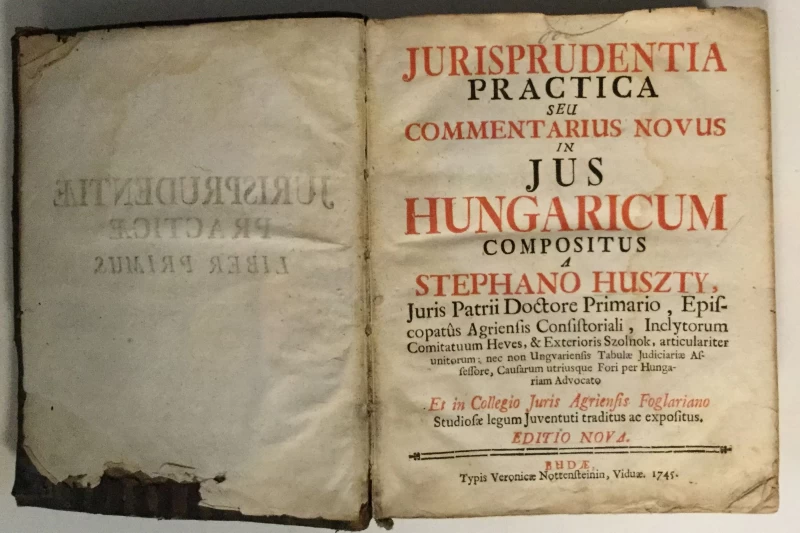 JURISPRUDENTIÆ
PRACTICÆ
LIBER PRIMUS
JURISPRUDENTIA
PRACTICA
SEU
COMMENTARIUS NOVUS
IN
JUS
HUNGARICUM
COMPOSITUS
A
STEPHANO HUSZTY,
Juris Patrii Doctore Primario, Epiſ-
copatûs Agrienſis Conſiſtoriali, Inclytorum
Comitatuum Heves, & Exterioris Szolnok, articulariter
unitorum; nec non Ungvarienſis Tabulæ Judiciariæ Aſ-
ſeſſore, Cauſarum utriusque Fori per Hunga-
riam Advocato
Et in Collegio Juris Agrienſis Foglariano
Studioſæ legum Juventuti traditus ac expoſitus.
EDITIO NOVA.
BUDÆ,
Typis Veronicæ Nottenſteinin, Viduæ. 1745.